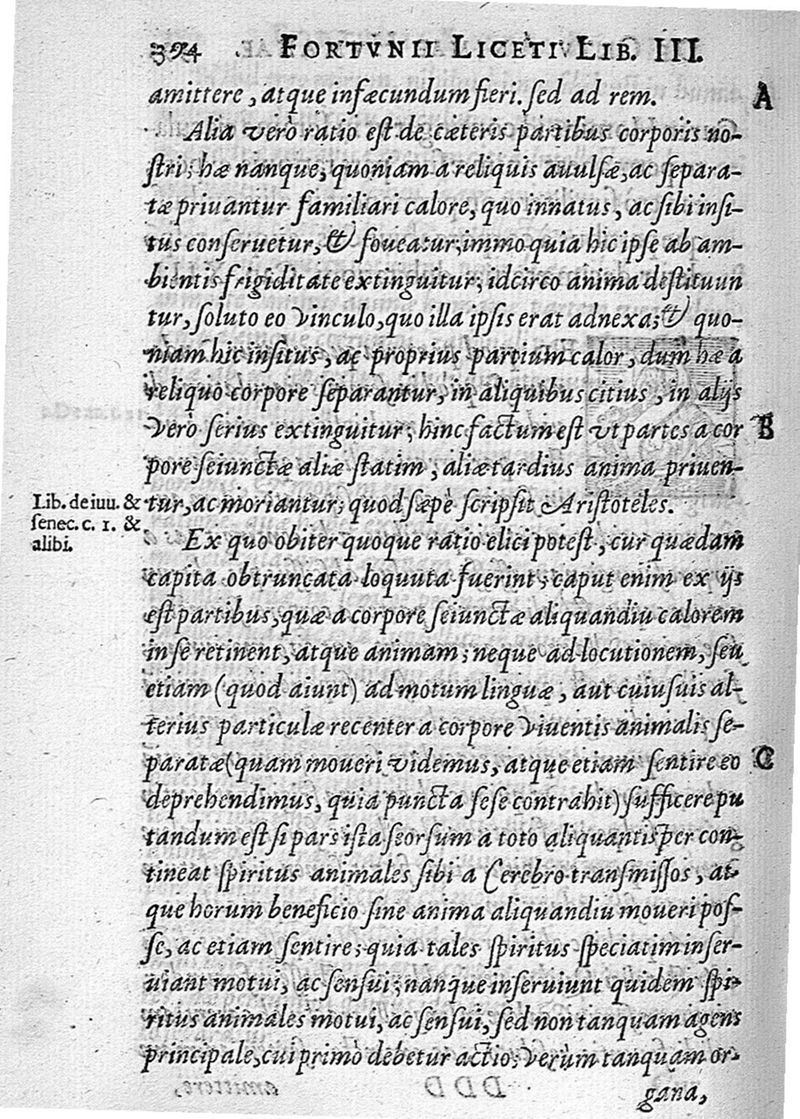 394 FORTVNII LICETI LIB. III.
amittere, atque infæcundum fieri. ſed ad rem. A
Alia verò ratio eſt de cæteris partibus corporis no-
ſtri; hæ nanque, quoniam a reliquis auulſæ, ac ſepara-
tæ priuantur familiari calore, quo innatus, ac ſibi inſi-
tus conſeruetur, & foueatur; immo quia hic ipſe ab am-
bientis frigiditate extinguitur, idcirco anima deſtituun
tur, ſoluto eo vinculo, quo illa ipſis erat adnexa; & quo-
niam hic inſitus, ac proprius partium calor, dum hæ a
reliquo corpore ſeparantur, in aliquibus citius, in alijs
verò ſerius extinguitur; hinc factum eſt vt partes a cor B
pore ſeiunctæ aliæ ſtatim, aliæ tardius anima priuen-
tur, ac moriantur; quod ſæpè ſcripſit Ariſtoteles.
Lib. de iuu. &
ſenec. c. 1. &
alibi.
Ex quo obiter quoque ratio elici poteſt, cur quædam
capita obtruncata loquuta fuerint; caput enim ex ijs
eſt partibus, quæ a corpore ſeiunctæ aliquandiu calorem
in ſe retinent, atque animam; neque ad locutionem, ſeu
etiam (quod aiunt) ad motum linguæ, aut cuiuſuis al-
terius particulæ recenter a corpore viuentis animalis ſe-
paratæ (quam moueri videmus, atque etiam ſentire eo C
deprehendimus, quia puncta ſeſe contrahit) ſufficere pu
tandum eſt ſi pars iſta ſeorſum a toto aliquantiſper con-
tineat ſpiritus animales ſibi a Cerebro tranſmiſſos, at-
que horum beneficio ſine anima aliquandiu moueri poſ-
ſe, ac etiam ſentire; quia tales ſpiritus ſpeciatim inſer-
uiant motui, ac ſenſui; nanque inſeruiunt quidem ſpi-
ritus animales motui, ac ſenſui, ſed non tanquam agens
principale, cui primò debetur actio; verùm tanquam or-
gana,